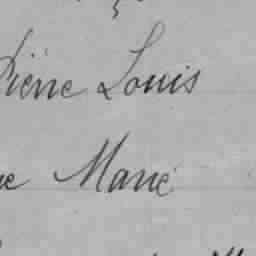 Pierre Louis
Marie